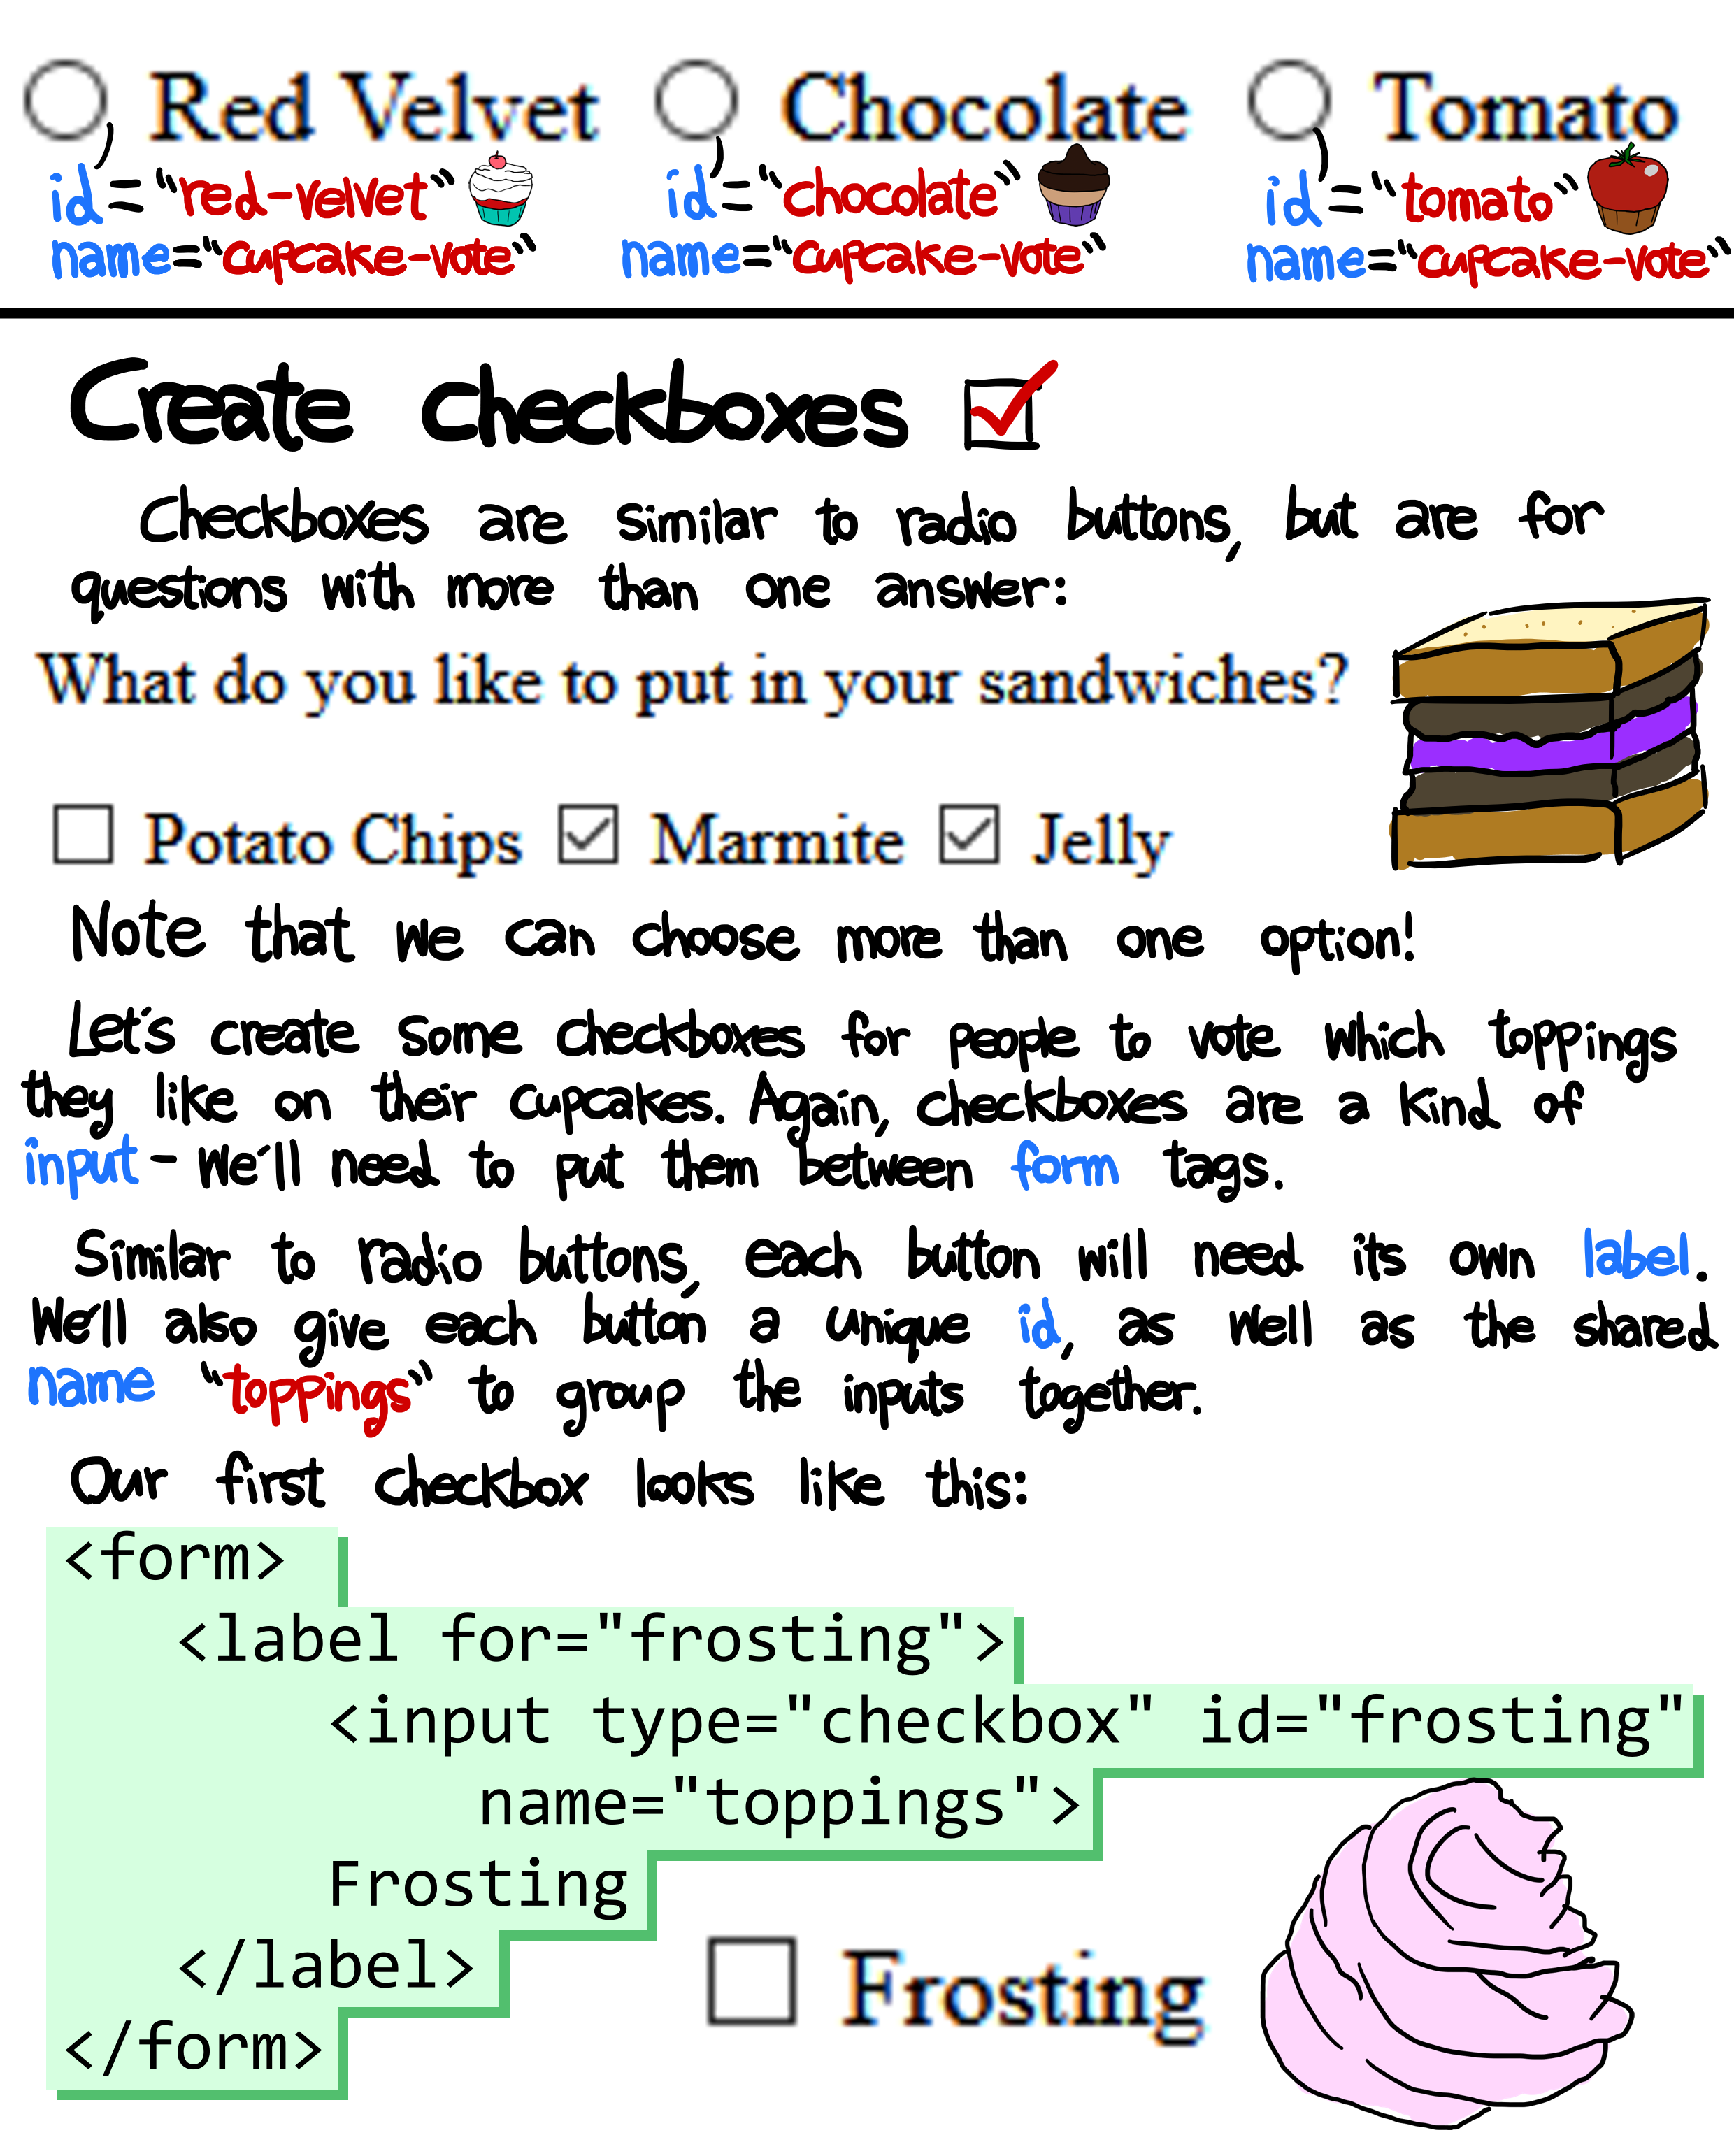 Red Velvet Chocolate Tomato
id="red-velvet" id="chocolate" id="tomato"
name="cupcake-vote" name="cupcake-vote" name="cupcake-vote"
Create checkboxes
Checkboxes are similar to radio buttons, but are for
questions with more than one answer:
What do you like to put in your sandwiches?
Potato Chips Marmite Jelly
Note that we can choose more than one option!
Let's create some checkboxes for people to vote which toppings
they like on their cupcakes. Again, checkboxes are a kind of
input - we'll need to put them between form tags.
Similar to radio buttons, each button will need its own label.
We'll also give each button a unique id, as well as the shared
name "toppings" to group the inputs together.
Our first checkbox looks like this:
<form>
<label for="frosting">
<input type="checkbox" id="frosting"
name="toppings">
Frosting
</label>
</form>
Frosting